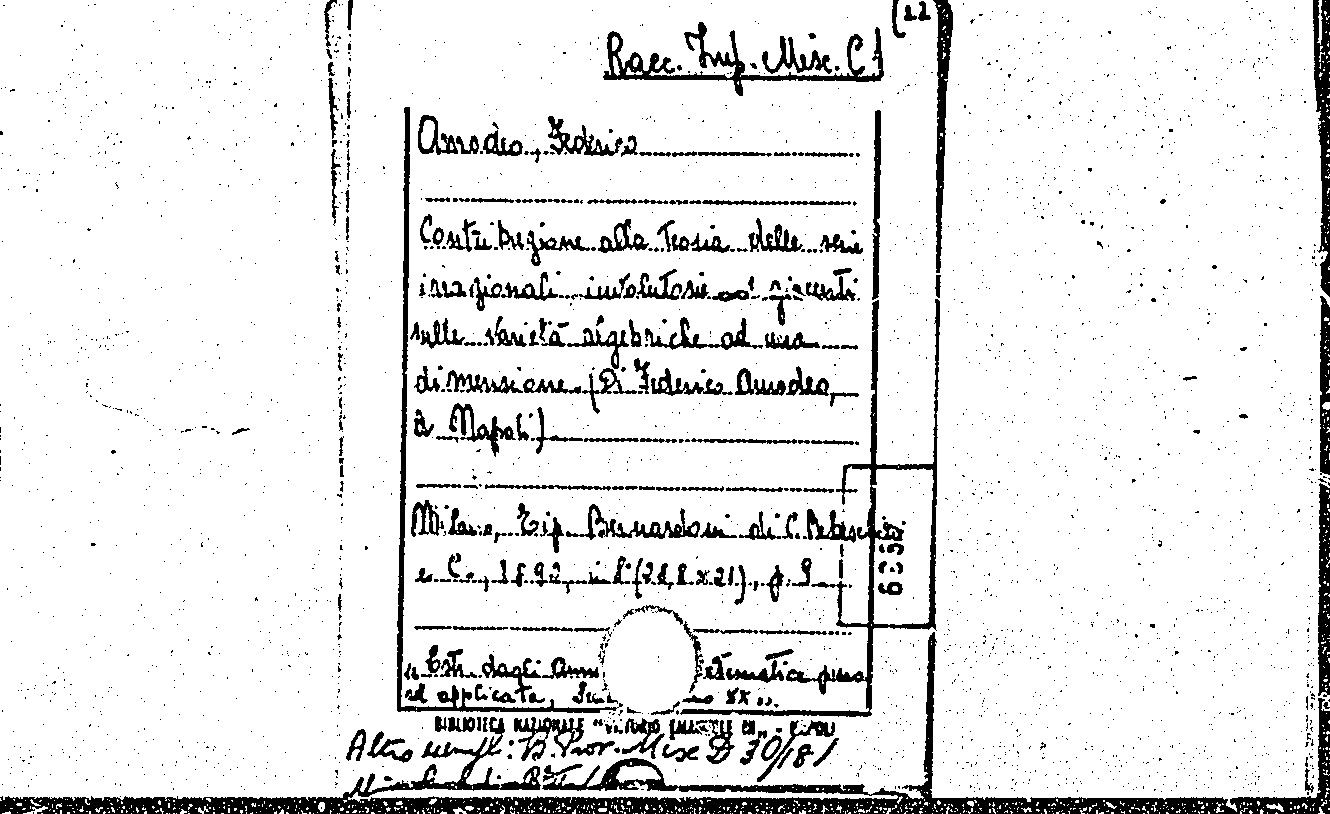 (22
Racc. Imp. Misc. C1
Amodeo, Federico
Contribuzione alla teoria delle serie
irrazionali involutorie ∞¹ giacenti
sulle varietà algebriche ad una
dimensione. (Di Federico Amodeo,
a Napoli)
Milano, Tip. Bernardoni di C. Rebeschini
e C., 1892, in 8° (28,8 x 21), p. 9
6335
"Estr. dagli Ann tematica pura
ed applicata, Se mo XX".
BIBLIOTECA NAZIONALE "VITTORIO EMANUELE III" - NAPOLI
Altro esempl: B. Prov. Misc D 30/181